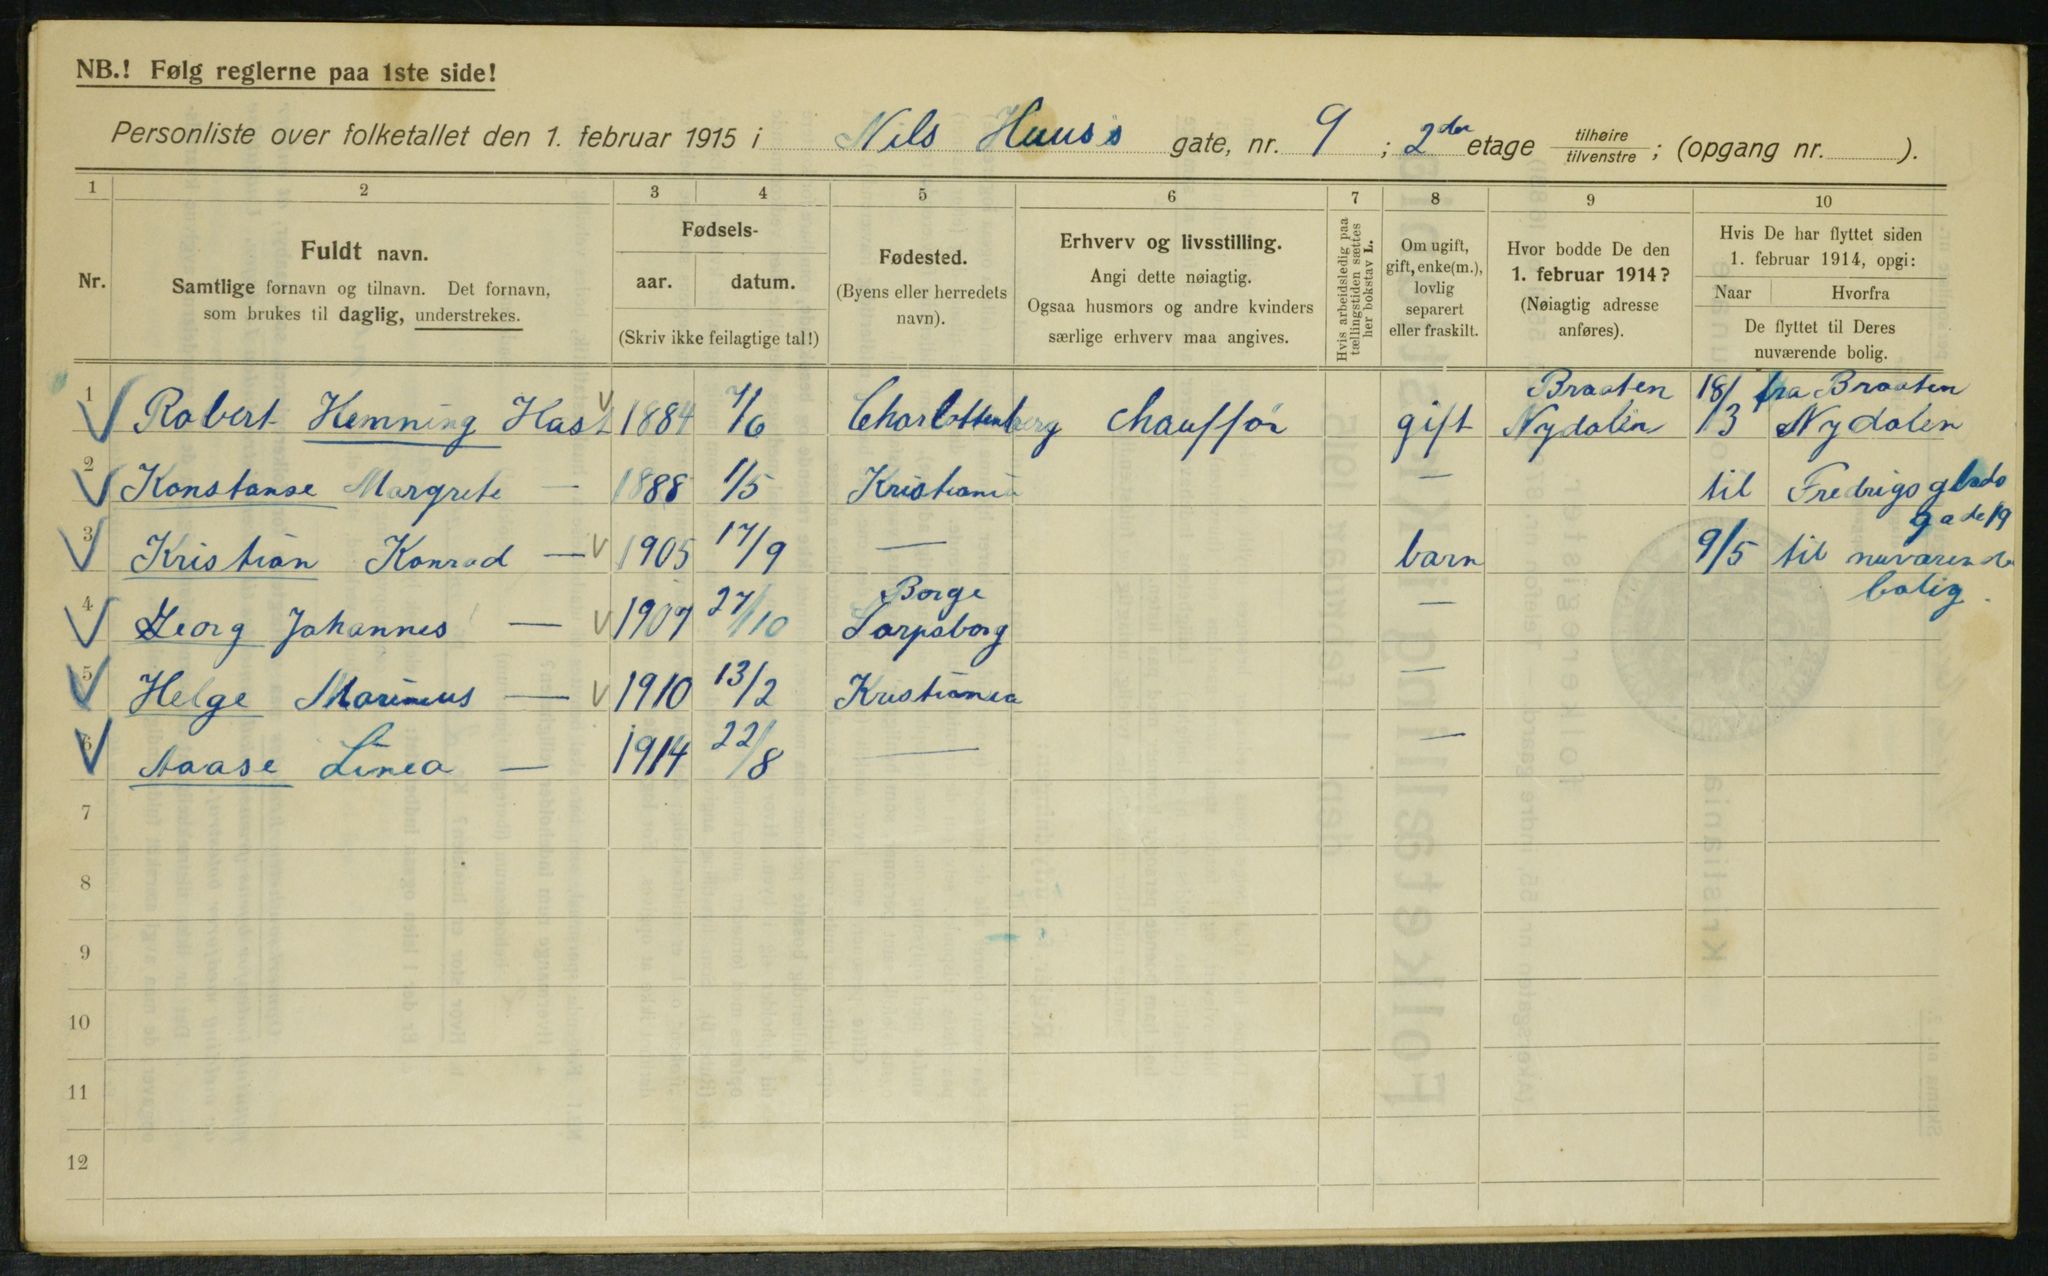 NB.! Følg reglerne paa 1ste side!
Personliste over folketallet den 1. februar 1915 i Nils Huus's gate, nr. 9 ; 2der etage tilhøire/tilvenstre ; (opgang nr. ).
1 2 3 4 5 6 7 8 9 10
Nr.
Fuldt navn.
Samtlige fornavn og tilnavn. Det fornavn,
som brukes til daglig, understrekes.
Fødsels-
aar. datum.
(Skriv ikke feilagtige tal!)
Fødested.
(Byens eller herredets
navn).
Erhverv og livsstilling.
Angi dette nøiagtig.
Ogsaa husmors og andre kvinders
særlige erhverv maa angives.
Hvis arbeidsledig paa
tællingstiden sættes
her bokstav L.
Om ugift,
gift, enke(m.),
lovlig
separert
eller fraskilt.
Hvor bodde De den
1. februar 1914?
(Nøiagtig adresse
anføres).
Hvis De har flyttet siden
1. februar 1914, opgi:
Naar Hvorfra
De flyttet til Deres
nuværende bolig.
1 Robert Hemning Hast 1884 7/6 Charlottenberg Chauffør gift Braaten Nydalen 18/3 fra Braaten Nydalen
2 Konstanse Margrete — 1888 1/5 Kristiania — til Fredrigs glads gade 19
3 Kristian Konrad — 1905 17/9 — barn 9/5 til nuværende bolig.
4 Georg Johannes — 1907 27/10 Borge Sarpsborg —
5 Helge Marinius — 1910 13/2 Kristiania —
6 Aaase Linea — 1914 22/8 — —
7
8
9
10
11
12